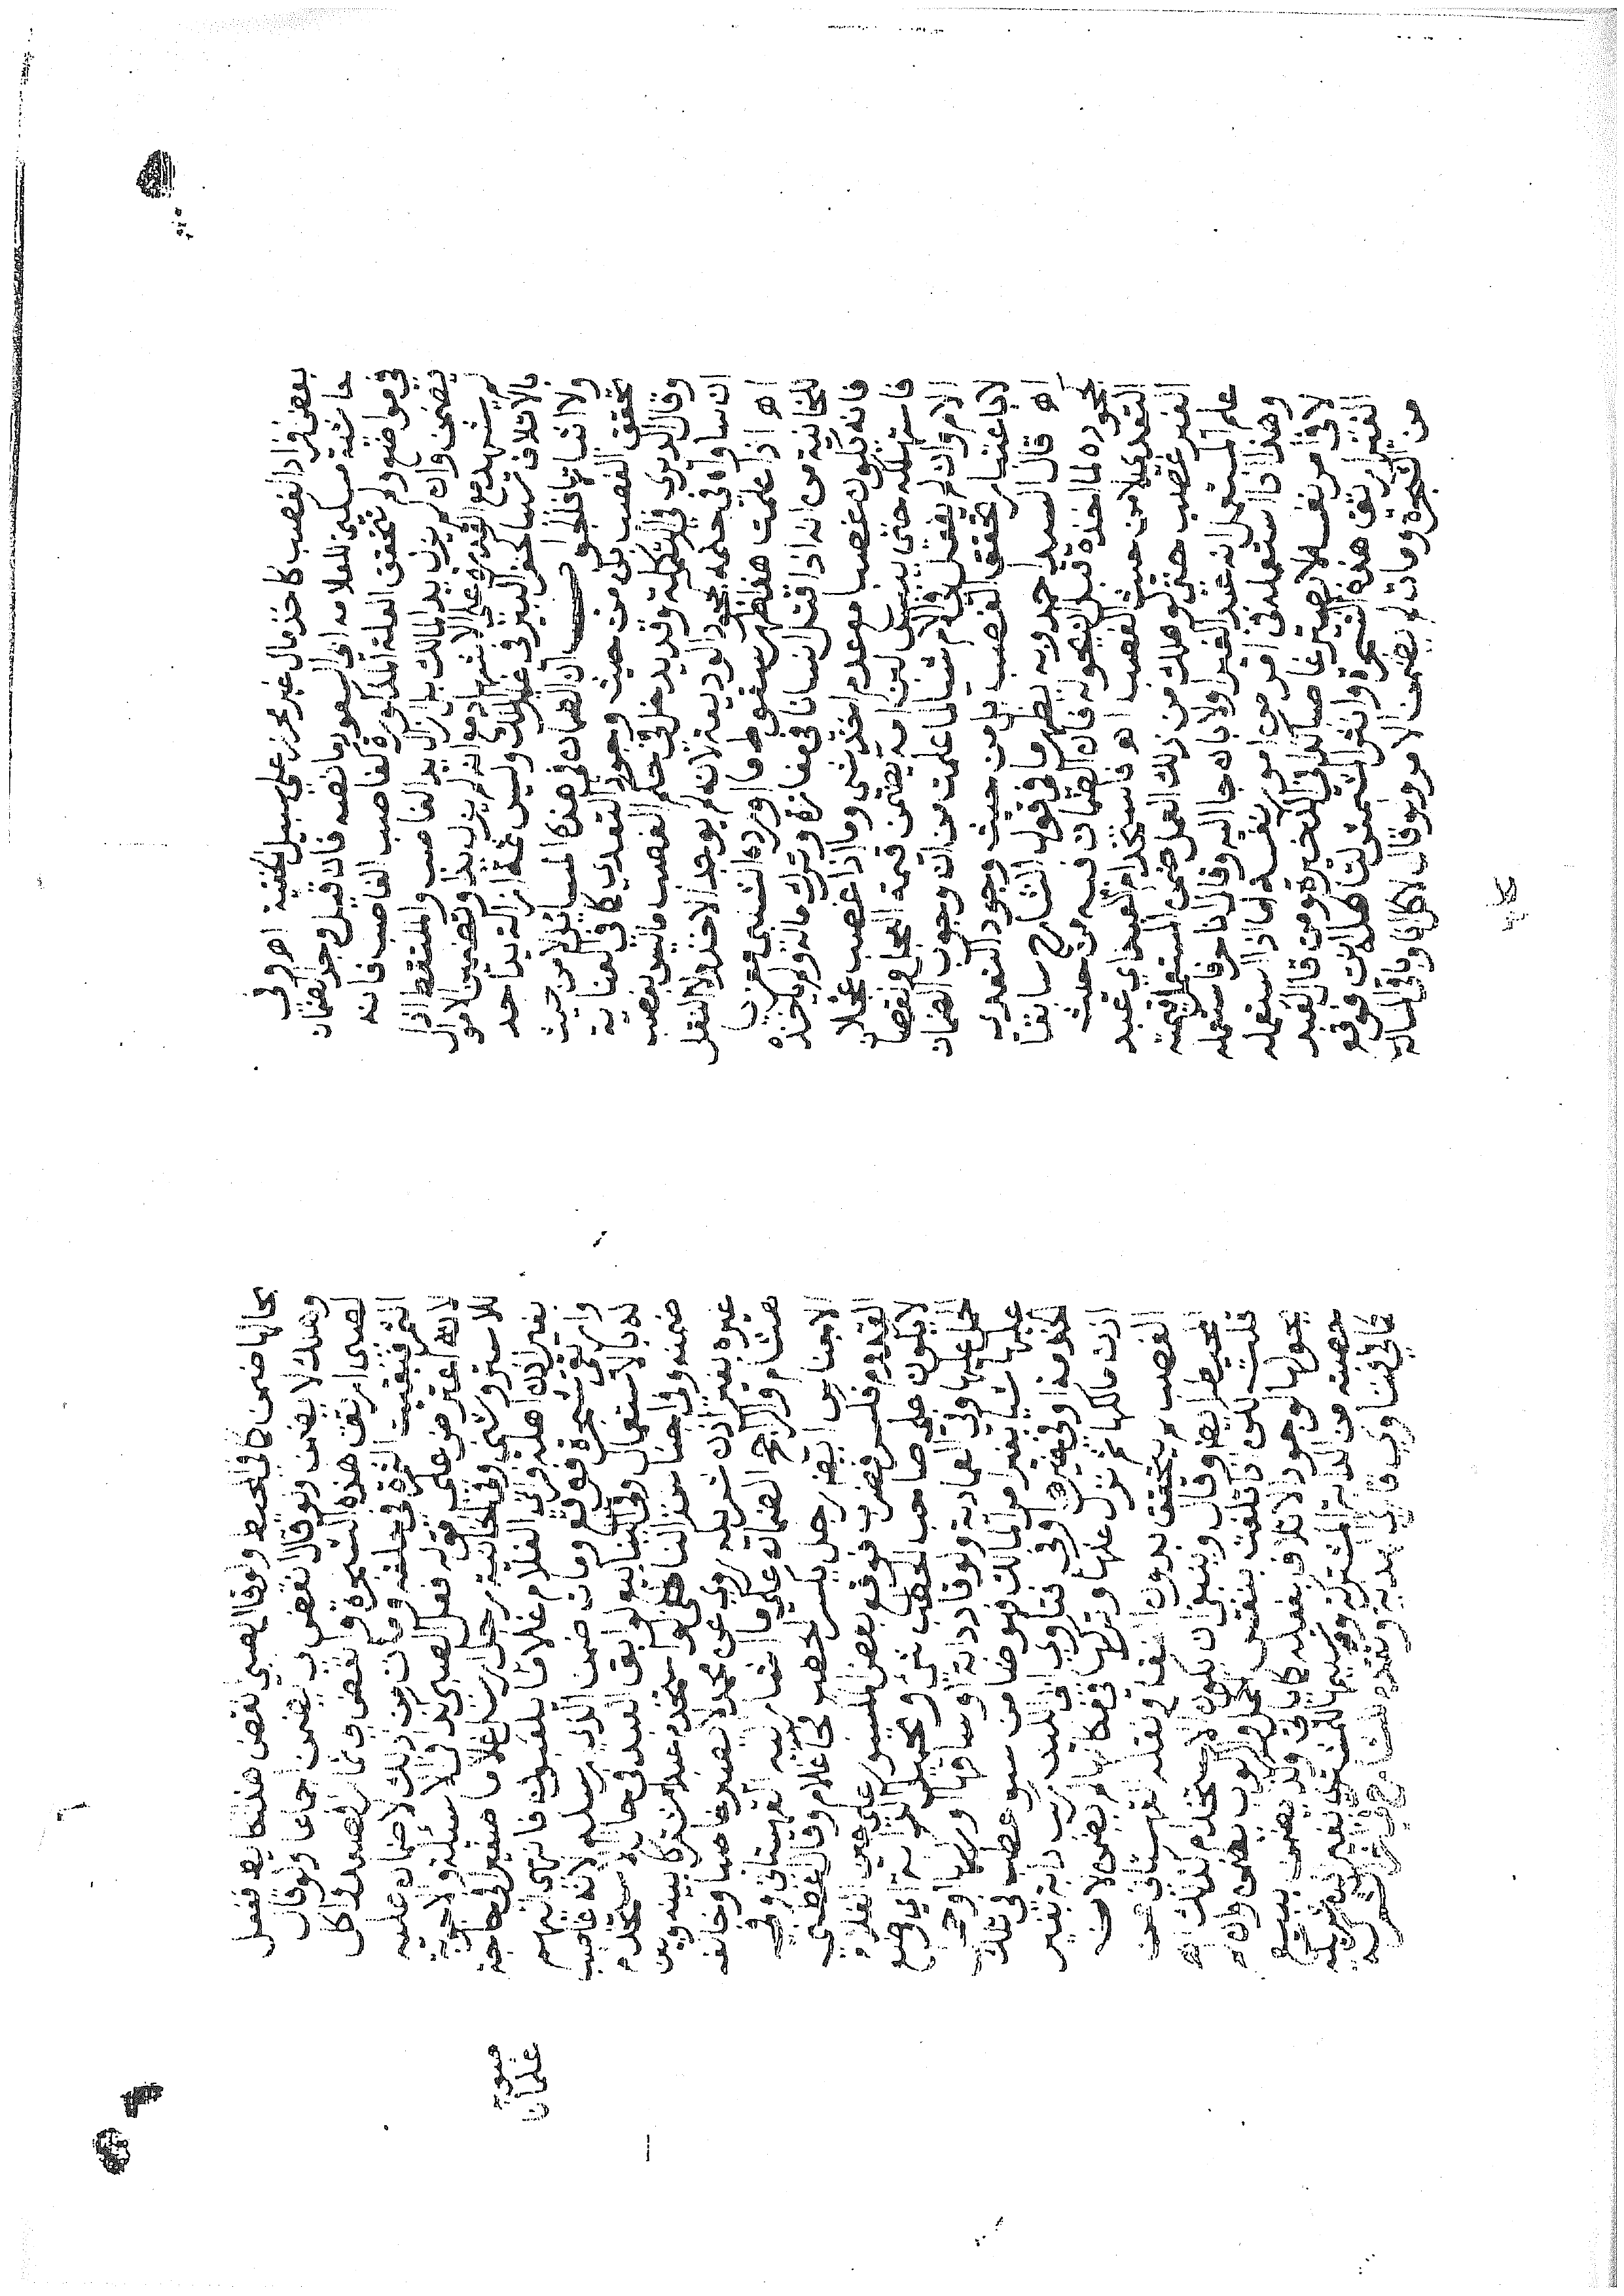 بعض افراد الغصب كاخذ مال غير محرز علي سبيل الخفية اهـ وفي
حاشية مسكين للعلامه ابي السعود ما نصه فان قيل وجد الضمان
في مواضع ولم تتحقق العلة المذكورة كغاصب الغاصب فانه
يضمن وان لم يزل يد المالك بل ازال يد الغاصب والملتقط اذا
لم يشهد مع القدرة علي الاشهاد مع انه لم يزل يدا وتضمين الاموال
بالاتلاف تسببا كحفر البير في غير الملك وليس ثمة ازالة يد احد
ولا اثباتها فالجواب ان الضمان في هذه المسائل لا من حيث
تحقق الغصب بل من حيث وجود التعدي كما في العناية
وقال الديري في التكملة وقد يدخل في حكم الغصب ما ليس بغصب
ان ساواه في حكمه كجحود الوديعة لانه لم يوجد الاخذ ولا النقل
اهـ اذا علمت هذا ظهر سقوط ما اورده الشلبي معزيا
للخانية من انه اذا قتل انسانا في مفازة وترك ماله ولم ياخذه
فانه يكون غصبا مع عدم اخذ شي وما اذا غصب عجلا
فاستهلكه حتى يبس لبن امه يضمن قيمة العجل ونقصان
الام وان لم يفعل في الام شيا لما علمت من ان وجوب الضمان
لا باعتبار تحقق الغصب بل من حيث وجود التعدي
اهـ قال السيد احمد وبه نظر ما في قول الشارح سابقا
بجحوده لما اخذه قبل ان يحوله فان الضمان فيه من حيث
التعدي لا من حيث الغصب اهـ فاستخدام العبد اي عبد
الغير غصب حتى لو هلك من ذلك العمل ضمن المستعمل قيمته
علم المستعمل انه عبد الغير او لا بان جا اليه وقال انا حر فاستعمله
وهذا اذا استعمله في امر من امور نفسه اما اذا استعمله
لا في امر نفسه لا يصير غاصبا كما في الذخيرة ومن قال لعبد
الغير ارتق هذه الشجرة وانثر المشمش لتاكله انت فوقع
من الشجرة ومات لم يضمن الامر ولو قال لاكل انا وباقي المسالة
بحالها ضمن كما في المحيط ولو قال لصبي انفض هذا ففعل
وهلك لا يضمن ولو قال انفض لي يضمن اجماعا ولو قال
لصبي ارتق هذه الشجرة وانفض لي ثمارا فصعد واكل
الثمر فبقيت الثمرة في حلقه ومات من ذلك لا ضمان عليه
لانه اعترض علي قوله فعل الصبي الاسئلة والاجوبة
للاستروشني وفي الخانية رجل ارسل غلاما صغيرا في حاجة
بغير اذن اهله فراي الغلام غلاما يلعبون فانتهي اليهم
وارتقي شجرة فوقع ومات ضمن الذي ارسله لانه غاصب
له بالاستعمال وفي الينابيع لو ابق العبد في حالة استخدامه
ضمنه وفي اجناس الناطفي لو استخدم عبدا مشتركا بينه وبين
غيره بغير اذن شريكه روي عن محمد لا يصير غاصبا وخالفه
هشام والراجح الضمان علي ما اشار اليه القهستاني وفي
الاجناس ايضا رجل يكسر الحصير فجا غلام وقال اعطني
القدوم فكسر فضرب فوقع بعض المكسور علي عين الغلام
لا يكون علي صاحب الحطب شي وتحميل الدابة اي وضع
الحمل عليها وفي العمادية ولو قاد دابة او ساقها او ركبها او حمل
عليها شيا بغير امر المالك فهو ضامن سوا عطب في تلك
الخدمة او في غيرها وفي فتاوي ابي الليث ركب دابة بغير
اذن مالكها ثم نزل عنها وتركها في مكانها لم يضمن لان
الغصب لم يتحقق بدون النقل ونقله القهستاني عن
المحيط ايضا وقال وينبغي ان يكون الاستخدام كذلك اهـ
قلت لكن اذا تلفت بنفس الحمل والركوب يضمن وان لم
يحولها لوجود الاتلاف بفعله كما ياتي ولو يضمن ببيع
حصته من الدابة المشتركة وتسليمها للمشتري بغير اذن شريكه
كما في فتاوي قاري الهداية
صوابه
غلمانا